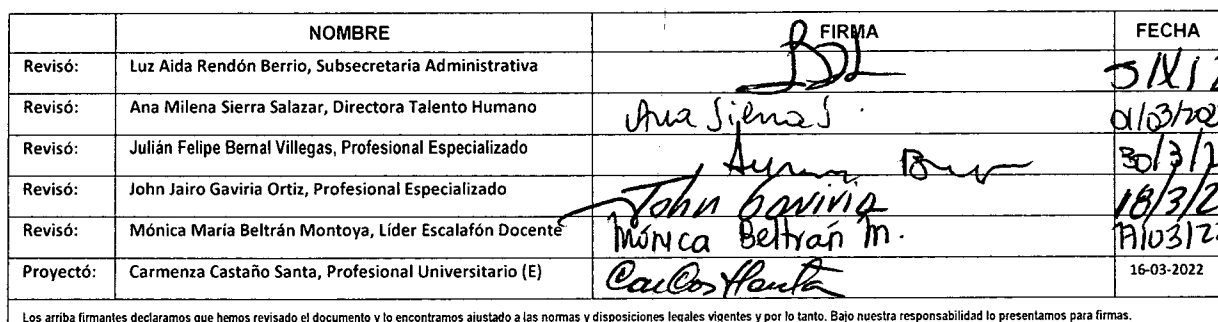 NOMBRE FIRMA FECHA
Revisó: Luz Aida Rendón Berrio, Subsecretaria Administrativa
Revisó: Ana Milena Sierra Salazar, Directora Talento Humano Ana Sierra S.
Revisó: Julián Felipe Bernal Villegas, Profesional Especializado 30/3/2
Revisó: John Jairo Gaviria Ortiz, Profesional Especializado John Gaviria 18/3/2
Revisó: Mónica María Beltrán Montoya, Líder Escalafón Docente Mónica Beltrán M.
Proyectó: Carmenza Castaño Santa, Profesional Universitario (E) 16-03-2022
Los arriba firmantes declaramos que hemos revisado el documento y lo encontramos ajustado a las normas y disposiciones legales vigentes y por lo tanto. Bajo nuestra responsabilidad lo presentamos para firmas.